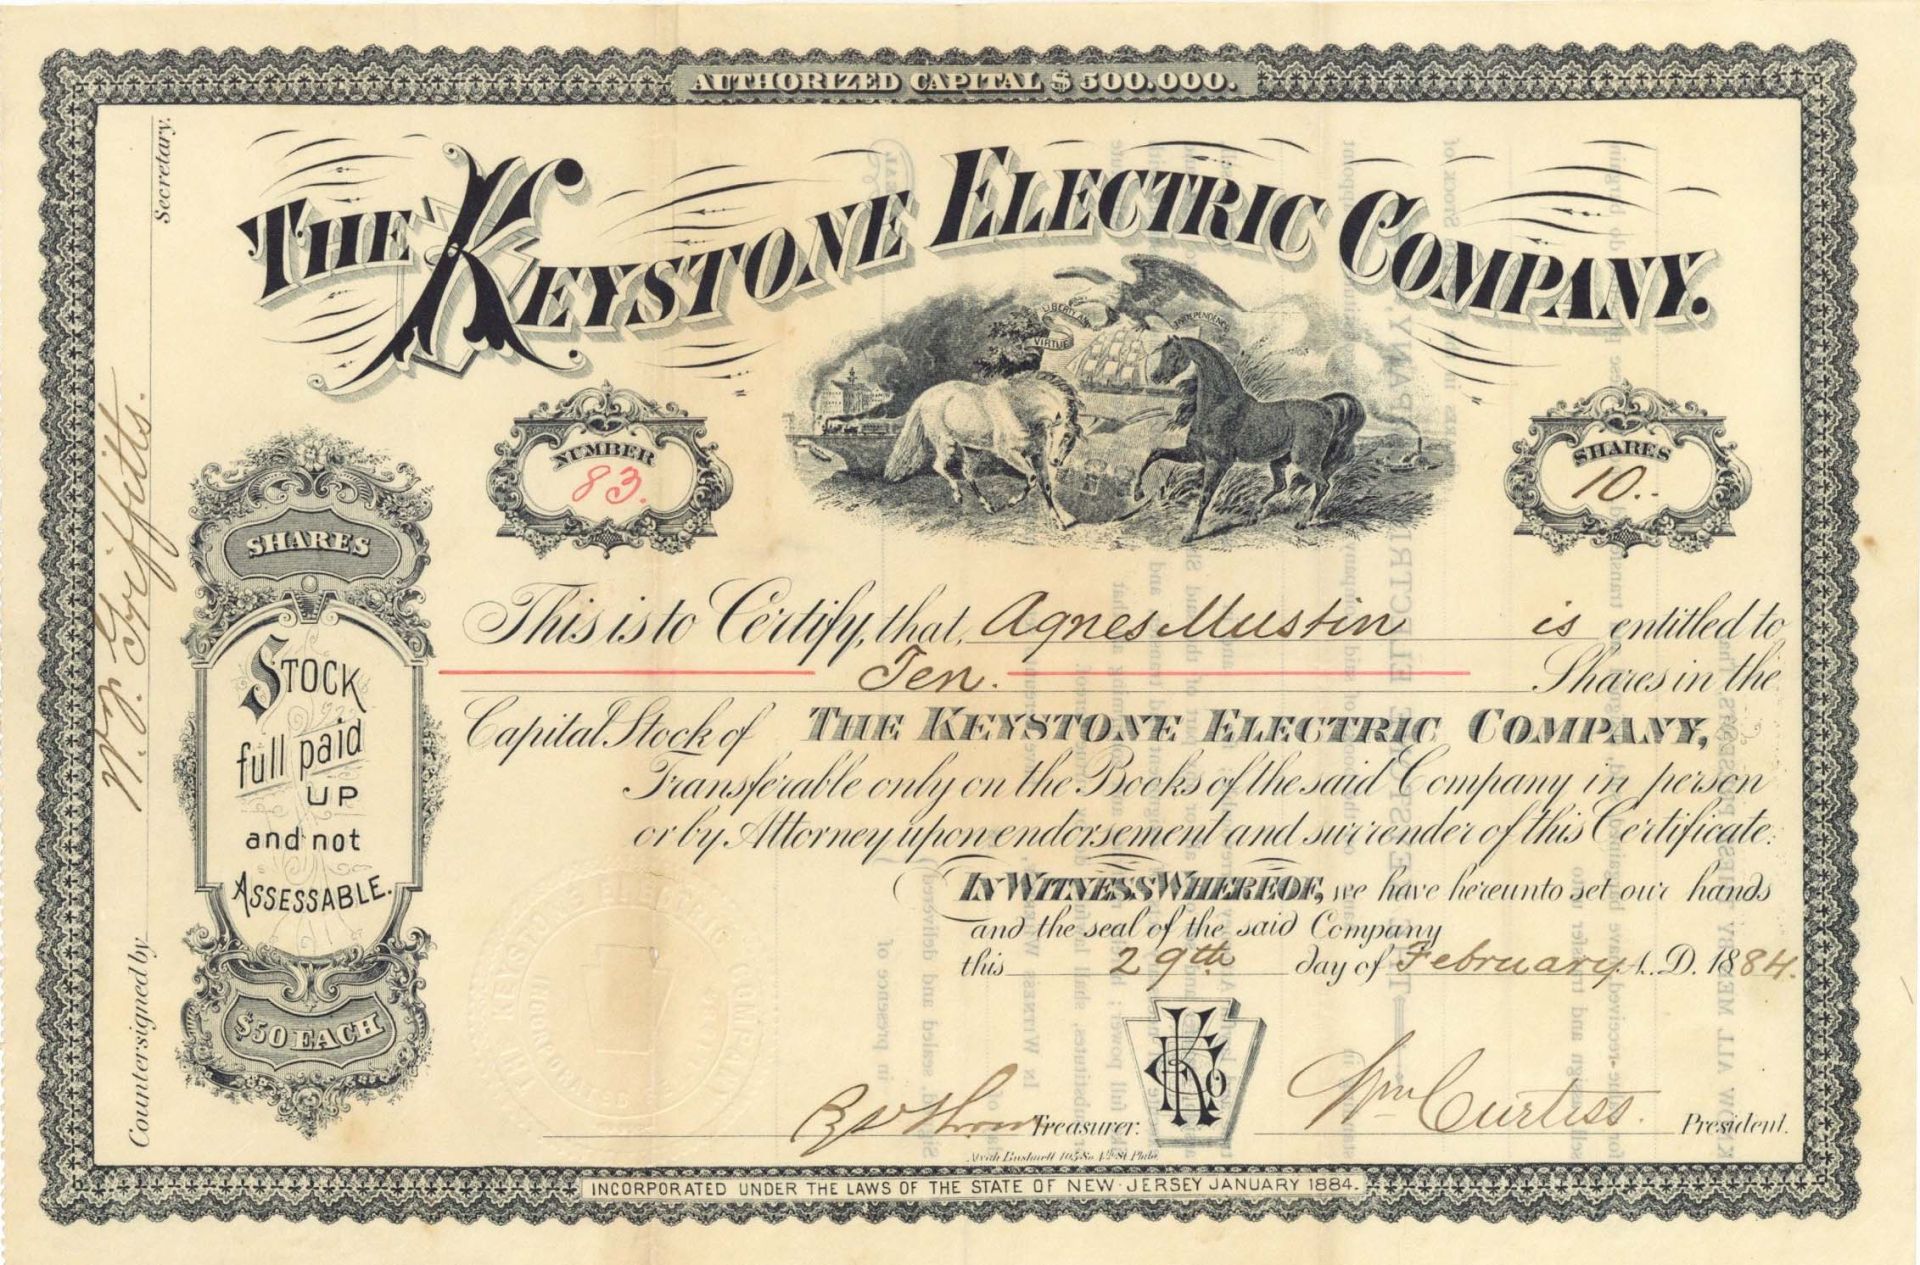 AUTHORIZED CAPITAL $500.000.
THE KEYSTONE ELECTRIC COMPANY.
VIRTUE
LIBERTY AND
INDEPENDENCE
NUMBER
83.
SHARES
10..
This is to Certify, that, Agnes Mustin is entitled to
Ten. Shares in the
Capital Stock of THE KEYSTONE ELECTRIC COMPANY,
Transferable only on the Books of the said Company in person
or by Attorney upon endorsement and surrender of this Certificate.
IN WITNESS WHEREOF, we have hereunto set our hands
and the seal of the said Company
this 29th day of February A.D. 1884.
Treasurer.
Wm Curtiss. President.
SHARES
STOCK
full paid
UP
and not
ASSESSABLE.
$50 EACH
Countersigned by W. J. Griffitts. Secretary.
INCORPORATED UNDER THE LAWS OF THE STATE OF NEW-JERSEY JANUARY 1884.